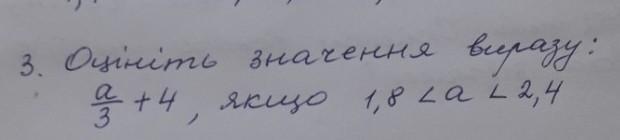 3. Оцініть значення виразу:
a/3 + 4, якщо 1,8 < a < 2,4